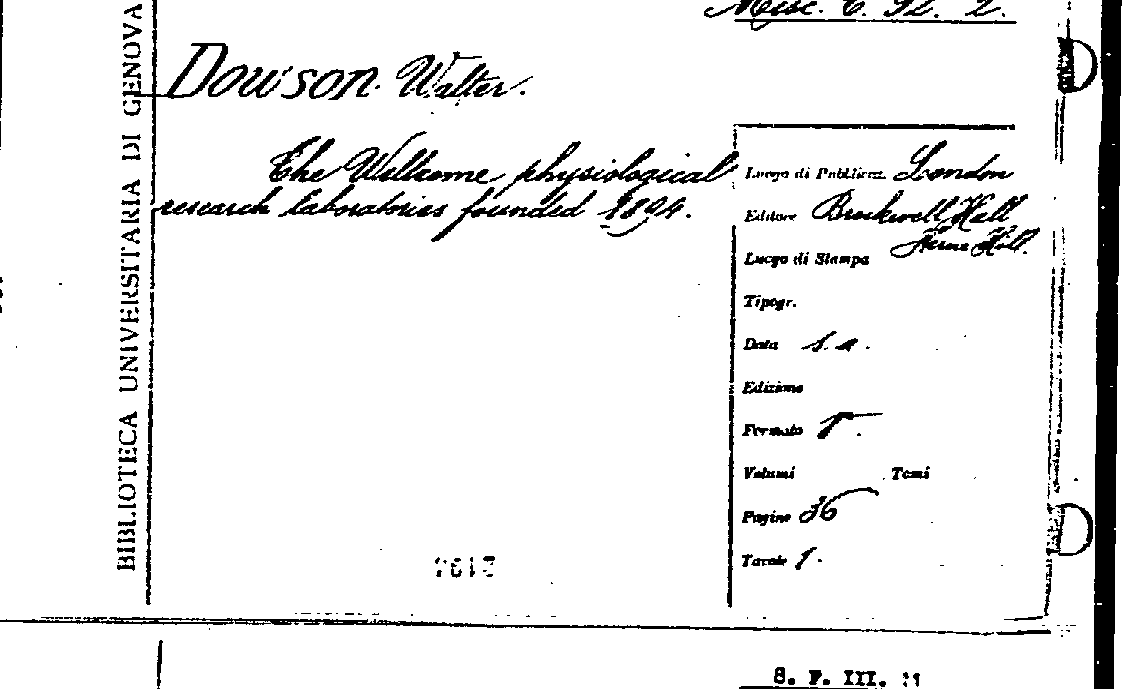 Misc. C. 92. 2.
BIBLIOTECA UNIVERSITARIA DI GENOVA
Dowson Walter.
The Wellcome physiological
research laboratories founded 1894.
Luogo di Pubblicaz. London
Editore Brockwell Hall
Herne Hill.
Luogo di Stampa
Tipogr.
Data s. a.
Edizione
Formato 8°.
Volumi Tomi
Pagine 36
Tavole 1.
S. F. III. 11